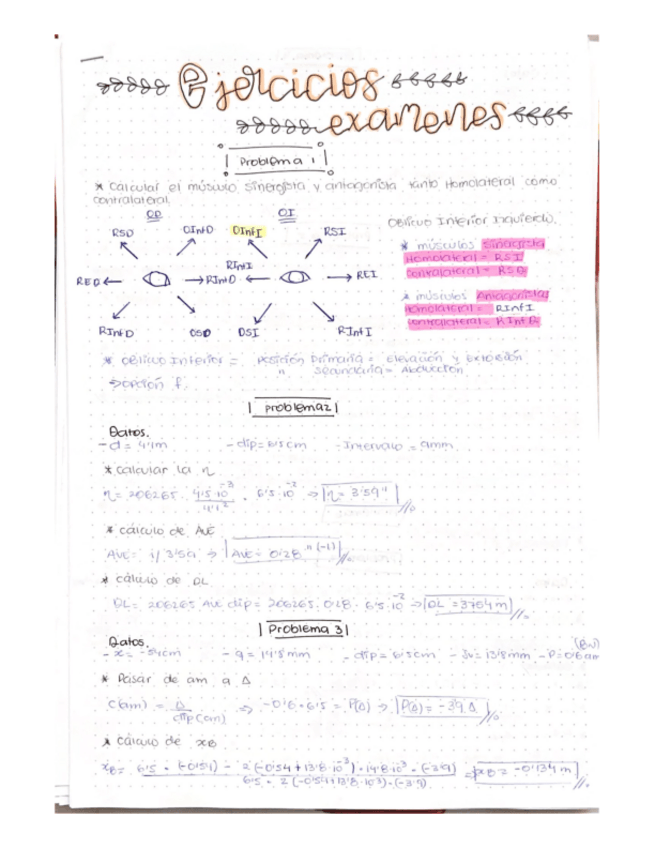 Ejercicios
examenes
Problema 1
* Calcular el músculo sinergista y antagonista tanto Homolateral como
contralateral.
OD OI
RSD OInfD OInfI RSI
Oblicuo Inferior Izquierdo.
* músculos sinergista
Homolateral = RSI
contralateral = RSD
RED RIntD RIntI REI
* músculos Antagonista
Homolateral = RInfI
contralateral = RInfD
RInfD OSD OSI RInfI
* Oblicuo Inferior = posición primaria = elevación y
" secundaria = Abducción
→ opción f.
Problema 2
Datos.
- d = 4'1m - dip = 6'5 cm - Intervalo =
* calcular la η
η = 206265 · 4'5·10⁻³ / 4'1² · 6'5·10⁻² → η = 3'59"
* cálculo de AVE
AVE = 1/3'59 → AVE = 0'28 " (-1)
* cálculo de DL
DL = 206265 AVE dip = 206265 · 0'28 · 6'5·10⁻² → DL = 3754 m
Problema 3
Datos.
- x = -54cm - q = 14'8 mm - dip = 6'5cm - = 13'8 mm - P = 0'6 am
(BN)
* Pasar de am a Δ
C(am) = Δ / dip(cm) ⇒ -0'6 · 6'5 = P(Δ) → P(Δ) = -3'9 Δ
* cálculo de xB
xB = → xB = -0'134 m